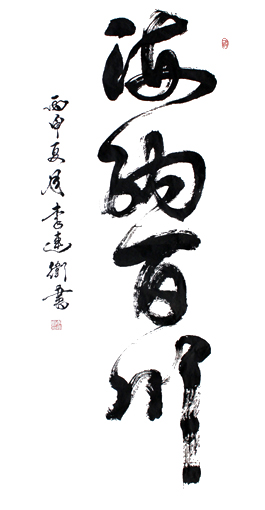 海纳百川
丙申夏月李连衡书